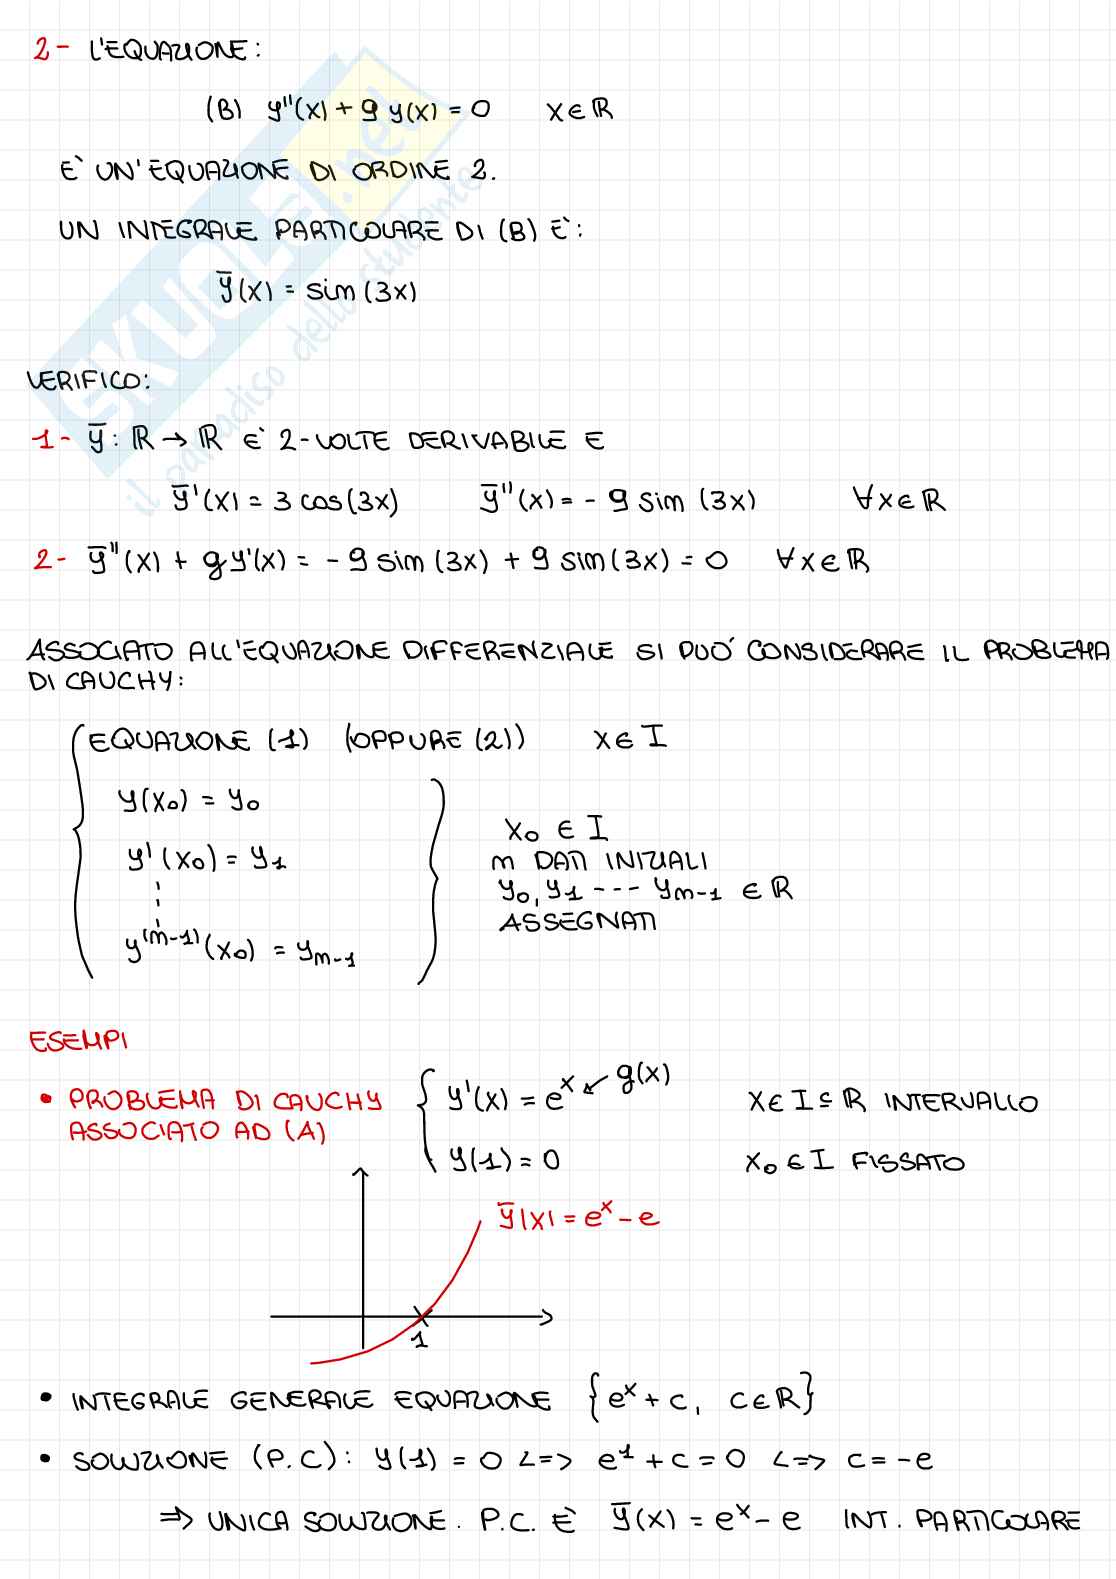 2- L'EQUAZIONE:
(B) y''(x) + 9 y(x) = 0 x ∈ ℝ
E' UN'EQUAZIONE DI ORDINE 2.
UN INTEGRALE PARTICOLARE DI (B) E':
ȳ(x) = sin (3x)
VERIFICO:
1- ȳ: ℝ → ℝ E' 2-VOLTE DERIVABILE E
ȳ'(x) = 3 cos(3x) ȳ''(x) = - 9 sin (3x) ∀ x ∈ ℝ
2- ȳ''(x) + 9 y'(x) = - 9 sin (3x) + 9 sin(3x) = 0 ∀ x ∈ ℝ
ASSOCIATO ALL'EQUAZIONE DIFFERENZIALE SI PUO' CONSIDERARE IL PROBLEMA
DI CAUCHY:
{ EQUAZIONE (1) (OPPURE (2)) x ∈ I
y(x₀) = y₀
y'(x₀) = y₁
y⁽ⁿ⁻¹⁾(x₀) = yₙ₋₁
x₀ ∈ I
n DATI INIZIALI
y₀, y₁ --- yₙ₋₁ ∈ ℝ
ASSEGNATI
ESEMPI
• PROBLEMA DI CAUCHY
ASSOCIATO AD (A)
{ y'(x) = eˣ ↙ g(x) x ∈ I ⊆ ℝ INTERVALLO
y(1) = 0 x₀ ∈ I FISSATO
ȳ(x) = eˣ - e
1
• INTEGRALE GENERALE EQUAZIONE {eˣ + c, c ∈ ℝ}
• SOLUZIONE (P.C): y(1) = 0 <=> e¹ + c = 0 <=> c = -e
=> UNICA SOLUZIONE. P.C. E' ȳ(x) = eˣ - e INT. PARTICOLARE
SKUOLA.net
il paradiso dello studente